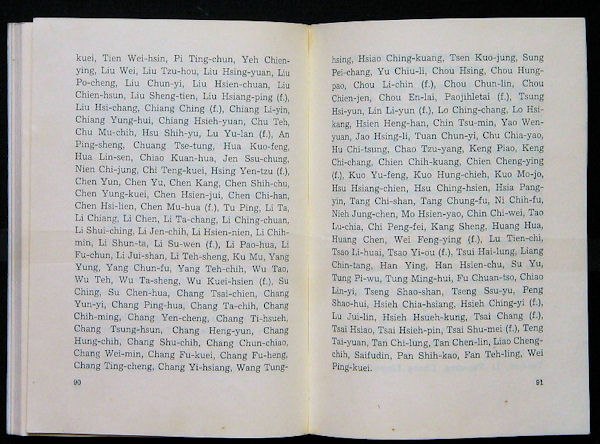 kuei, Tien Wei-hsin, Pi Ting-chun, Yeh Chien-
ying, Liu Wei, Liu Tzu-hou, Liu Hsing-yuan, Liu
Po-cheng, Liu Chun-yi, Liu Hsien-chuan, Liu
Chien-hsun, Liu Sheng-tien, Liu Hsiang-ping (f.),
Liu Hsi-chang, Chiang Ching (f.), Chiang Li-yin,
Chiang Yung-hui, Chiang Hsieh-yuan, Chu Teh,
Chu Mu-chih, Hsu Shih-yu, Lu Yu-lan (f.), An
Ping-sheng, Chuang Tse-tung, Hua Kuo-feng,
Hua Lin-sen, Chiao Kuan-hua, Jen Ssu-chung,
Nien Chi-jung, Chi Teng-kuei, Hsing Yen-tzu (f.),
Chen Yun, Chen Yu, Chen Kang, Chen Shih-chu,
Chen Yung-kuei, Chen Hsien-jui, Chen Chi-han,
Chen Hsi-lien, Chen Mu-hua (f.), Tu Ping, Li Ta,
Li Chiang, Li Chen, Li Ta-chang, Li Ching-chuan,
Li Shui-ching, Li Jen-chih, Li Hsien-nien, Li Chih-
min, Li Shun-ta, Li Su-wen (f.), Li Pao-hua, Li
Fu-chun, Li Jui-shan, Li Teh-sheng, Ku Mu, Yang
Yung, Yang Chun-fu, Yang Teh-chih, Wu Tao,
Wu Teh, Wu Ta-sheng, Wu Kuei-hsien (f.), Su
Ching, Su Chen-hua, Chang Tsai-chien, Chang
Yun-yi, Chang Ping-hua, Chang Ta-chih, Chang
Chih-ming, Chang Yen-cheng, Chang Ti-hsueh,
Chang Tsung-hsun, Chang Heng-yun, Chang
Hung-chih, Chang Shu-chih, Chang Chun-chiao,
Chang Wei-min, Chang Fu-kuei, Chang Fu-heng,
Chang Ting-cheng, Chang Yi-hsiang, Wang Tung-
90
hsing, Hsiao Ching-kuang, Tsen Kuo-jung, Sung
Pei-chang, Yu Chiu-li, Chou Hsing, Chou Hung-
pao, Chou Li-chin (f.), Chou Chun-lin, Chou
Chien-jen, Chou En-lai, Paojihletai (f.), Tsung
Hsi-yun, Lin Li-yun (f.), Lo Ching-chang, Lo Hsi-
kang, Hsien Heng-han, Chin Tsu-min, Yao Wen-
yuan, Jao Hsing-li, Tuan Chun-yi, Chu Chia-yao,
Hu Chi-tsung, Chao Tzu-yang, Keng Piao, Keng
Chi-chang, Chien Chih-kuang, Chien Cheng-ying
(f.), Kuo Yu-feng, Kuo Hung-chieh, Kuo Mo-jo,
Hsu Hsiang-chien, Hsu Ching-hsien, Hsia Pang-
yin, Tang Chi-shan, Tang Chung-fu, Ni Chih-fu,
Nieh Jung-chen, Mo Hsien-yao, Chin Chi-wei, Tao
Lu-chia, Chi Peng-fei, Kang Sheng, Huang Hua,
Huang Chen, Wei Feng-ying (f.), Lu Tien-chi,
Tsao Li-huai, Tsao Yi-ou (f.), Tsui Hai-lung, Liang
Chin-tang, Han Ying, Han Hsien-chu, Su Yu,
Tung Pi-wu, Tung Ming-hui, Fu Chuan-tso, Chiao
Lin-yi, Tseng Shao-shan, Tseng Ssu-yu, Peng
Shao-hui, Hsieh Chia-hsiang, Hsieh Ching-yi (f.),
Lu Jui-lin, Hsieh Hsueh-kung, Tsai Chang (f.),
Tsai Hsiao, Tsai Hsieh-pin, Tsai Shu-mei (f.), Teng
Tai-yuan, Tan Chi-lung, Tan Chen-lin, Liao Cheng-
chih, Saifudin, Pan Shih-kao, Fan Teh-ling, Wei
Ping-kuei.
91